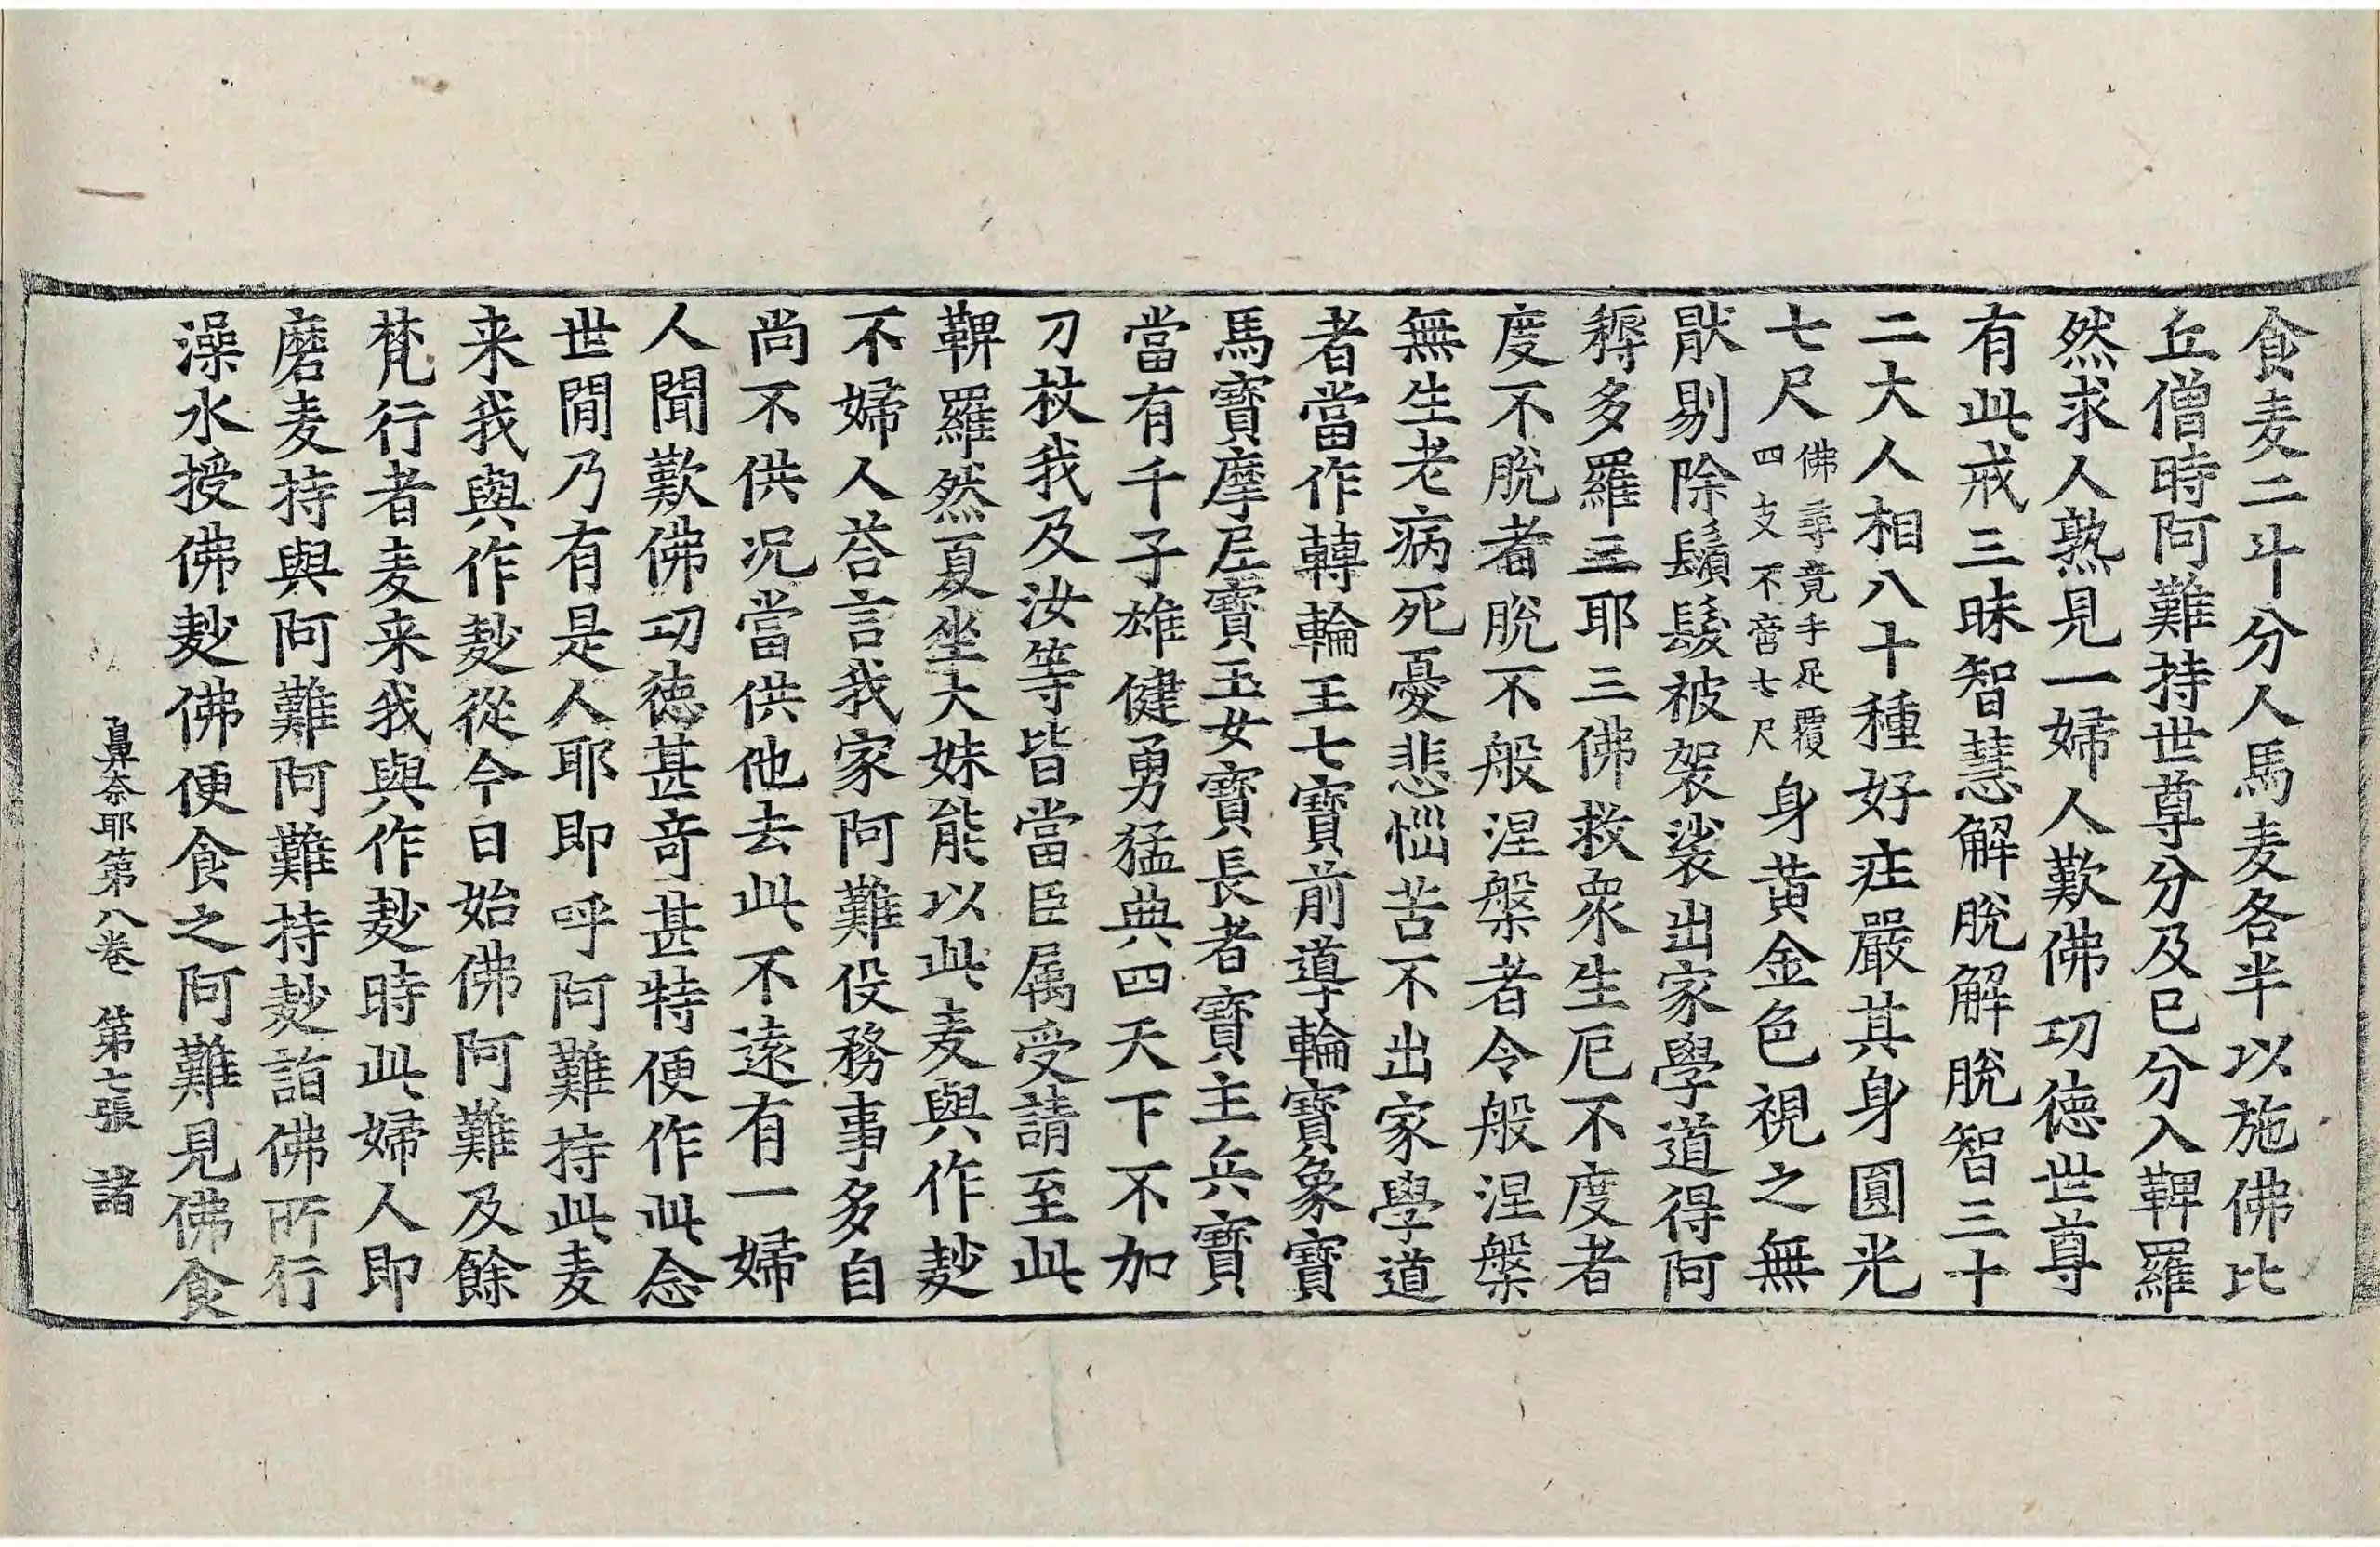 食麦二斗分人馬麦各半以施佛比
丘僧時阿難持世尊分及巳分入鞞羅
然求人熟見一婦人歎佛功徳世尊
有此戒三昧智慧解脫解脫智三十
二大人相八十種好莊嚴其身圓光
七尺佛尋竟手足覆四支不啻七尺身黄金色視之無
猒剔除鬚髮被袈裟出家學道得阿
耨多羅三耶三佛救衆生厄不度者
度不脫者脫不般涅槃者令般涅槃
無生老病死憂悲惱苦不出家學道
者當作轉輪王七寶前導輪寶象寶
馬寶摩尼寶玉女寶長者寶主兵寶
當有千子雄健勇猛典四天下不加
刀杖我及汝等皆當臣属受請至此
鞞羅然夏坐大妹能以此麦與作麨
不婦人荅言我家阿難役務事多自
尚不供况當供他去此不遠有一婦
人聞歎佛功徳甚奇甚特便作此念
世間乃有是人耶即呼阿難持此麦
来我與作麨從今日始佛阿難及餘
梵行者麦来我與作麨時此婦人即
磨麦持與阿難阿難持麨詣佛所行
澡水授佛麨佛便食之阿難見佛食
鼻奈耶第八巻 第七張 諸